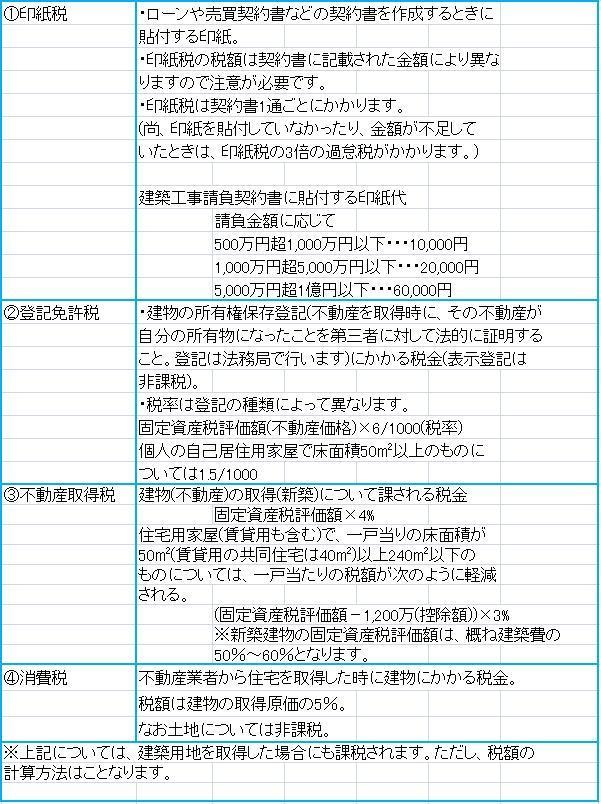 ①印紙税
・ローンや売買契約書などの契約書を作成するときに
貼付する印紙。
・印紙税の税額は契約書に記載された金額により異な
りますので注意が必要です。
・印紙税は契約書1通ごとにかかります。
(尚、印紙を貼付していなかったり、金額が不足して
いたときは、印紙税の3倍の過怠税がかかります。)
建築工事請負契約書に貼付する印紙代
請負金額に応じて
500万円超1,000万円以下・・・10,000円
1,000万円超5,000万円以下・・・20,000円
5,000万円超1億円以下・・・60,000円
②登記免許税
・建物の所有権保存登記(不動産を取得時に、その不動産が
自分の所有物になったことを第三者に対して法的に証明する
こと。登記は法務局で行います)にかかる税金(表示登記は
非課税)。
・税率は登記の種類によって異なります。
固定資産税評価額(不動産価格)×6/1000(税率)
個人の自己居住用家屋で床面積50㎡以上のものに
ついては1.5/1000
③不動産取得税
建物(不動産)の取得(新築)について課される税金
固定資産税評価額×4%
住宅用家屋(賃貸用も含む)で、一戸当りの床面積が
50㎡(賃貸用の共同住宅は40㎡)以上240㎡以下の
ものについては、一戸当たりの税額が次のように軽減
される。
(固定資産税評価額－1,200万(控除額))×3%
※新築建物の固定資産税評価額は、概ね建築費の
50%～60%となります。
④消費税
不動産業者から住宅を取得した時に建物にかかる税金。
税額は建物の取得原価の5%。
なお土地については非課税。
※上記については、建築用地を取得した場合にも課税されます。ただし、税額の
計算方法はことなります。